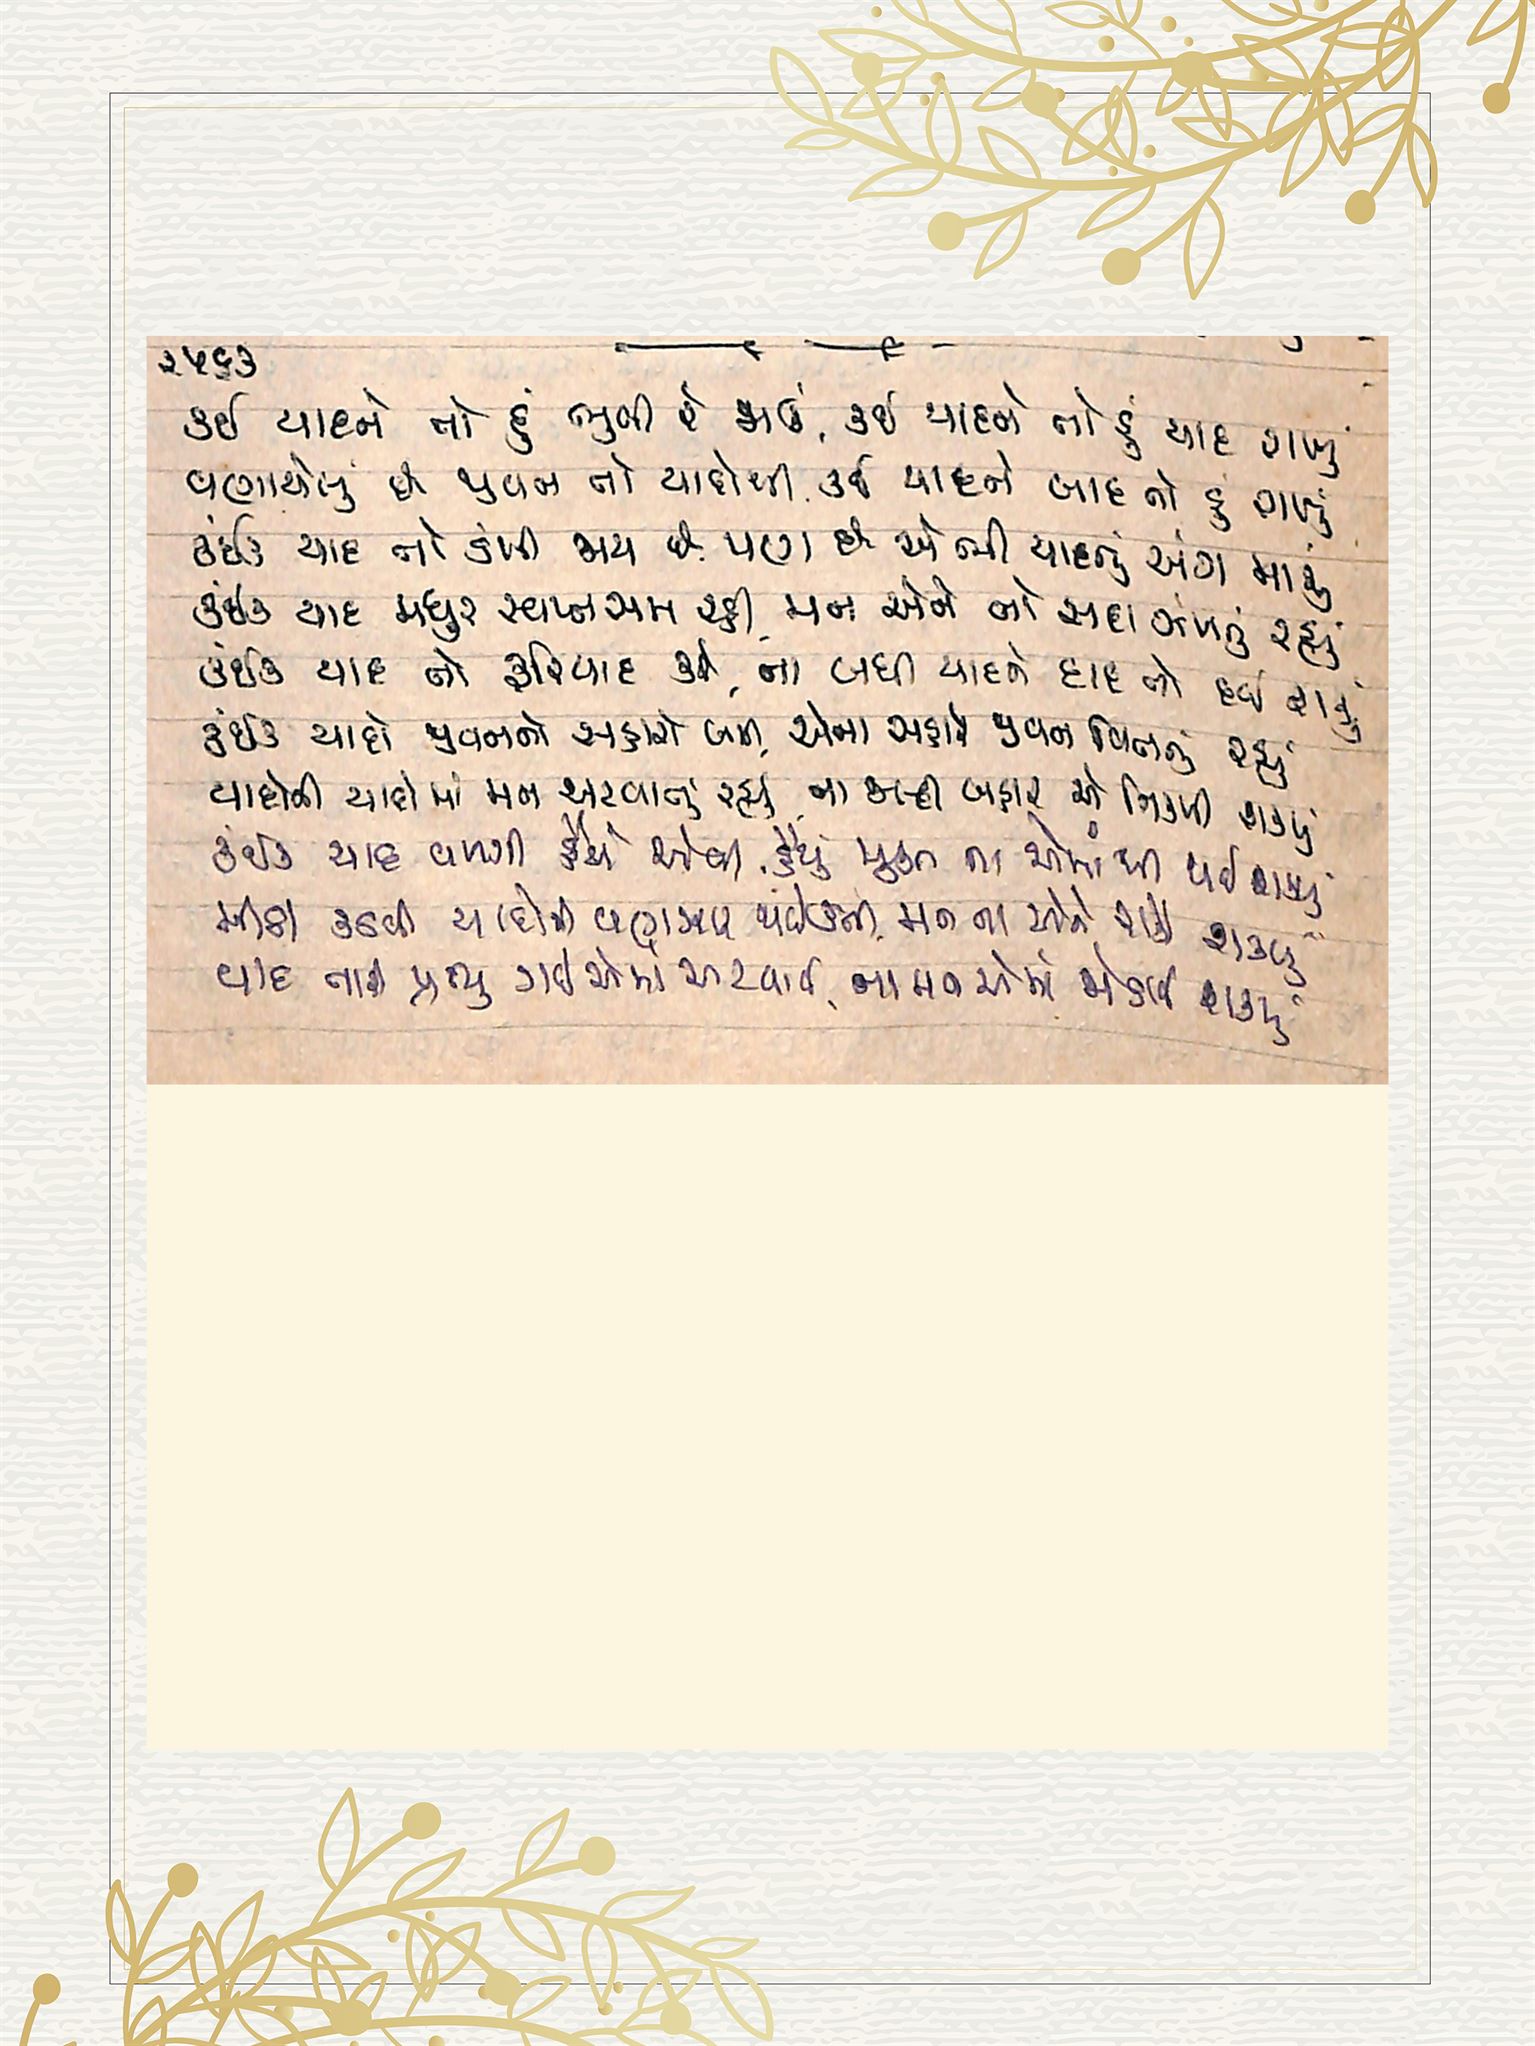 ૨૫૬૩
કઈ યાદને તો હું ભુલી રે જાઉં, કઈ યાદને તો હું યાદ રાખું
વણાયેલું છે જીવન તો યાદોથી, કઈ યાદને બાદ તો હું રાખું
કંઈક યાદ તો ડંખી જાય છે, પણ છે એ ભી યાદનું અંગ મારું
કંઈક યાદ મધુર સ્વપ્નસમ રહી, મન એને તો સદા ઝંખતું રહ્યું
કંઈક યાદ તો ફરિયાદ કરે, ના બધી યાદને દાદ તો દઈ શક્યું
કંઈક યાદો જીવનનો સહારો બની, એના સહારે જીવન વિતતું રહ્યું
યાદોની યાદોમાં મન સરવાતું રહ્યું, ના જલ્દી બહાર એ નિકળી શક્યું
કંઈક યાદ વળગી હૈયે એવી, હૈયું મુક્ત ના એમાંથી થઈ શક્યું
મીઠી કડવી યાદોની વણઝાર ચાલતી, મન ના એને રોકી શક્યું
યાદ તારી પ્રભુ ગઈ એમાં સરવાઈ, ના મન એમાં જોડાઈ શક્યું